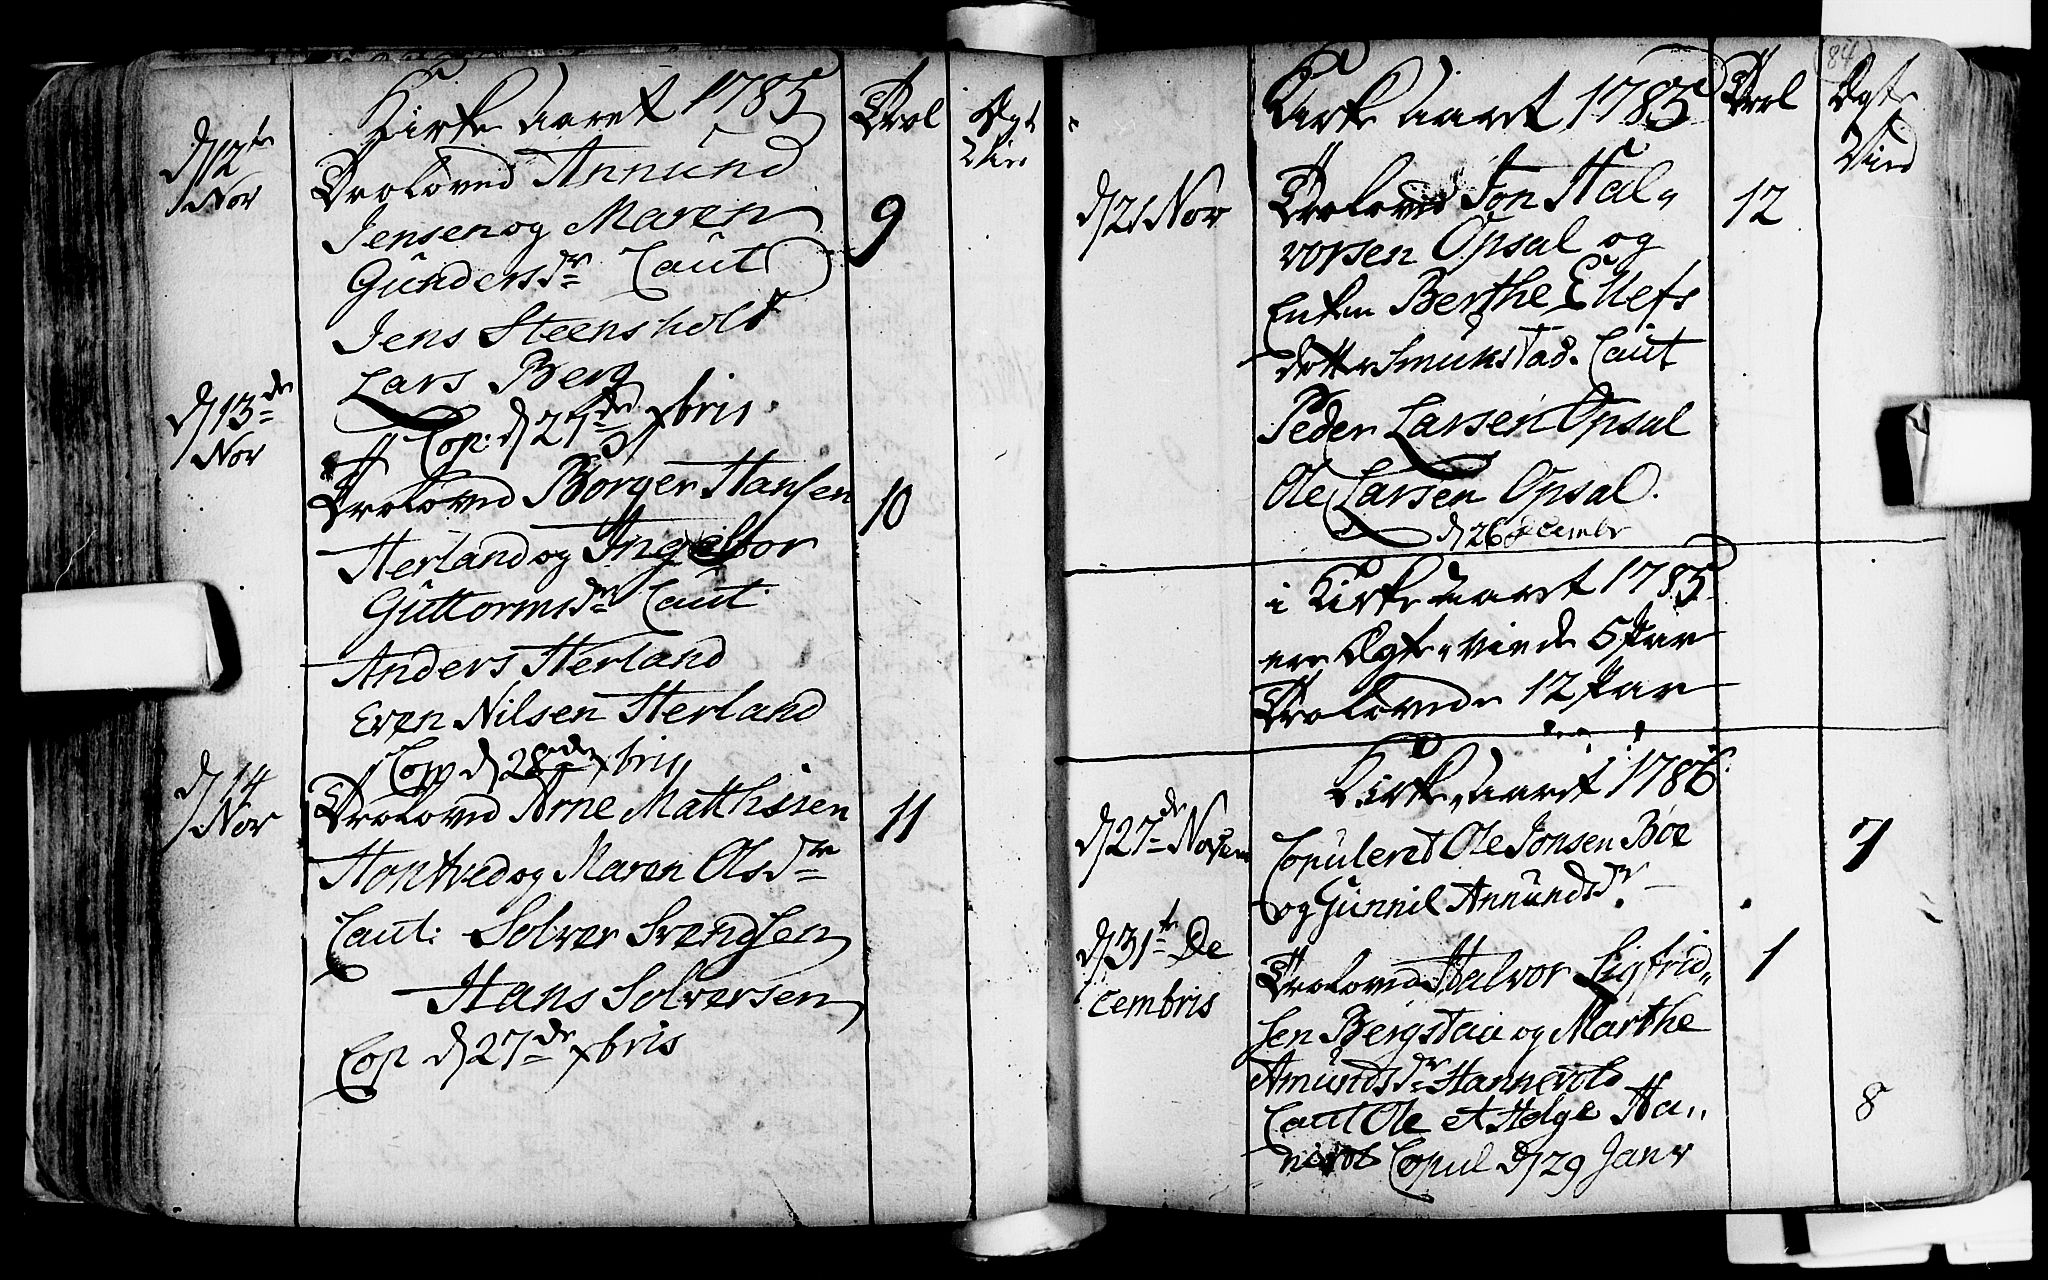 Kirke Aaret 1785
Trol
Ægt
Vie
d 12te
Nov
Troloved Annund
Jensen og Maren
9
Gundersdr Caut
Jens Steensholt
Lars Berg
Cop: d 27de xbris
d 13de
Nov
Troloved Borger Hansen
10
Herland og Ingebor
Guttormsdr Caut
Anders Herland
Even Nilsen Herland
Cop d 28de xbris
d 14
Nov
Troloved Arne Matthisen
11
Hontved og Maren Olsdr
Caut: Solver Svendsen
Hans Solversen
Cop d 27de xbris
84
Kirke Aaret 1785
Trol
Ægte
Vied
d 21 Nov
Troloved Jon Hal„
12
vorsen Opsal og
Enken Berthe Ellefs
dotter Smukstad. Caut
Peder Larsen Opsal
Ole Larsen Opsal.
d 26 decembr
i Kirke Aaret 1785
ere Ægte viede 5 Par
Trolovede 12 Par
Kirke Aaret 1786
d 27de Novem
Copuleret Ole Jonsen Böe
7
og Gunnil Annundsdr.
d 31te De
cembris
Troloved Halvor Sigfrid„
1
sen Bergstau og Marthe
Amundsdr Hannevold
Caut Ole et Helge Ha„
8
nevol Copul d 29 Janv